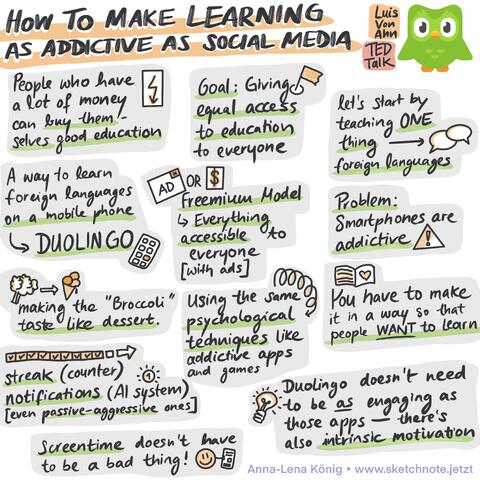 HOW TO MAKE LEARNING
AS ADDICTIVE AS SOCIAL MEDIA
Luis
Von
Ahn
TED
Talk
People who have
a lot of money
can buy them-
selves good education
Goal: Giving
equal access
to education
to everyone
let's start by
teaching ONE
thing
foreign languages
A way to learn
foreign languages
on a mobile phone
DUOLINGO
AD OR $
Freemium Model
Everything
accessible to
everyone
[with ads]
Problem:
Smartphones are
addictive
making the "Broccoli"
taste like dessert.
Using the same
psychological
techniques like
addictive apps
and games
You have to make
it in a way so that
people WANT to learn
streak (counter)
notifications (AI system)
[even passive-aggressive ones]
Duolingo doesn't need
to be as engaging as
those apps – there's
also intrinsic motivation
Screentime doesn't have
to be a bad thing!
Anna-Lena König • www.sketchnote.jetzt